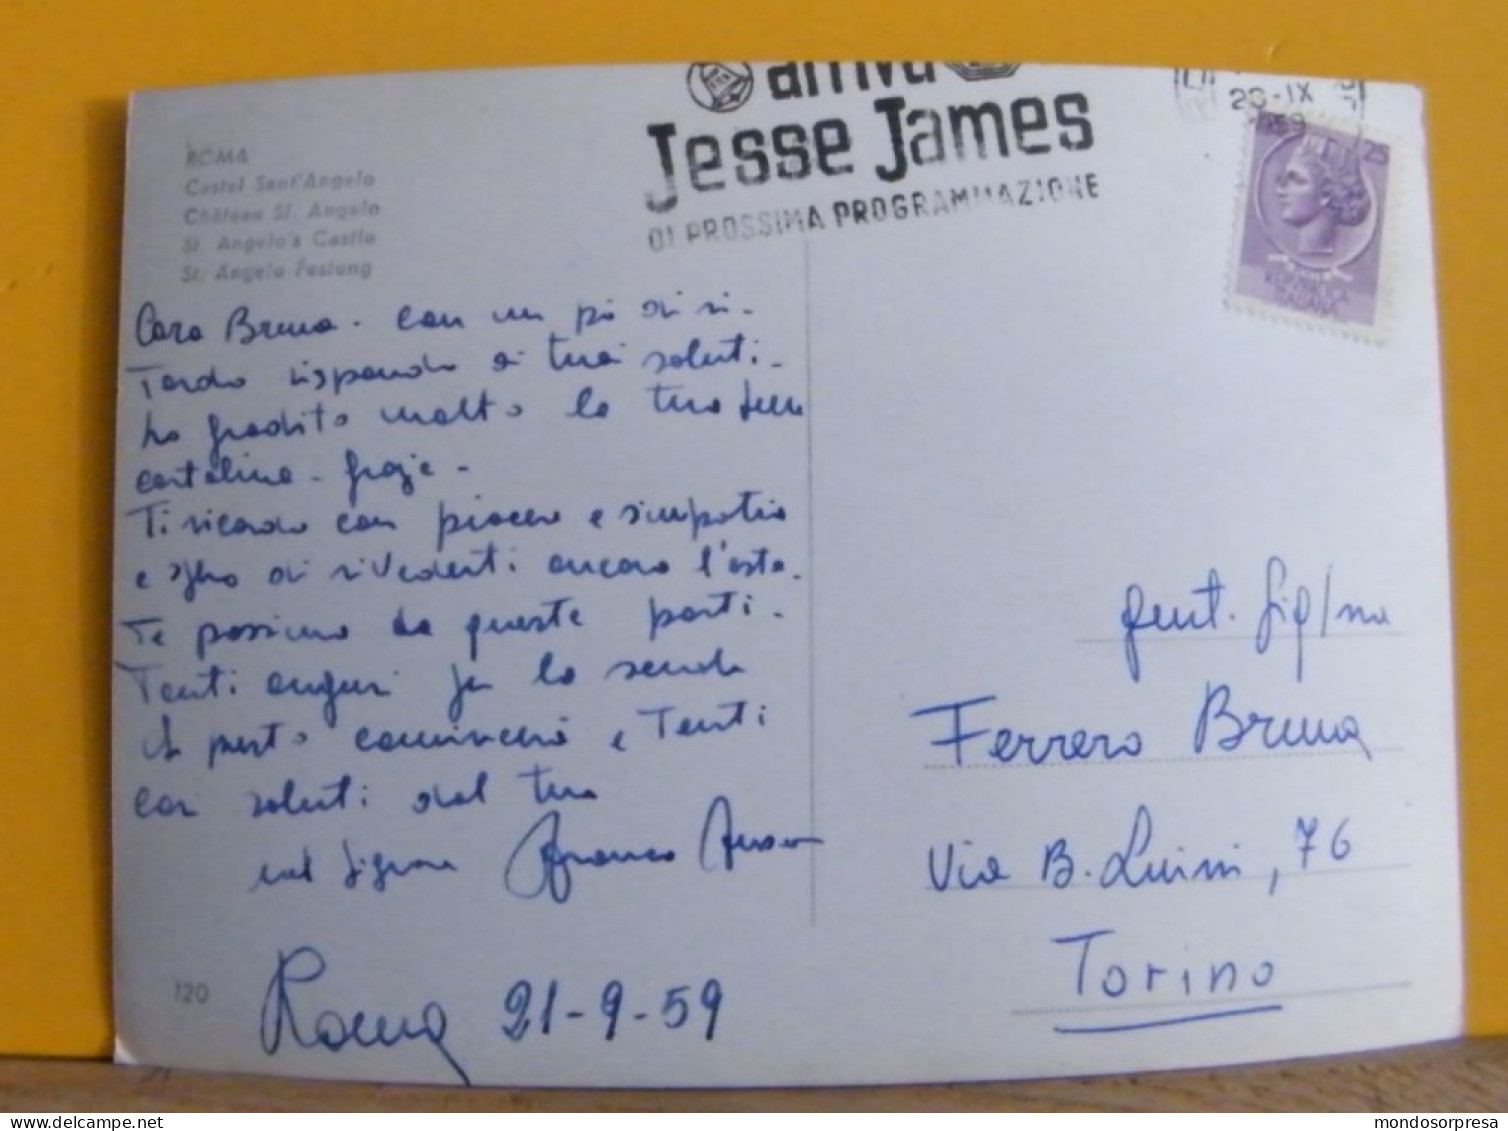 ROMA
Castel Sant'Angelo
Château St. Angelo
St. Angelo's Castle
St. Angelo Festung
arriva
Jesse James
DI PROSSIMA PROGRAMMAZIONE
-IX
1959
25
REPUBBLICA
ITALIANA
Cara Bruna - con un pò di ri-
tardo rispondo ai tuoi saluti -
ho gradito molto la tua bella
cartolina - grazie -
Ti ricordo con piacere e simpatia
e spero di rivederti ancora l'esta-
te prossima da queste parti -
Tanti auguri per la scuola
e Tanti
cari saluti dal tuo
Franco
Roma 21-9-59
120
Gent. Sig/na
Ferrero Bruna
Via B. Luini, 76
Torino
mondosorpresa